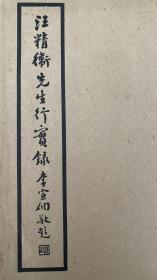 汪精衛先生行實錄 李宣倜敬題